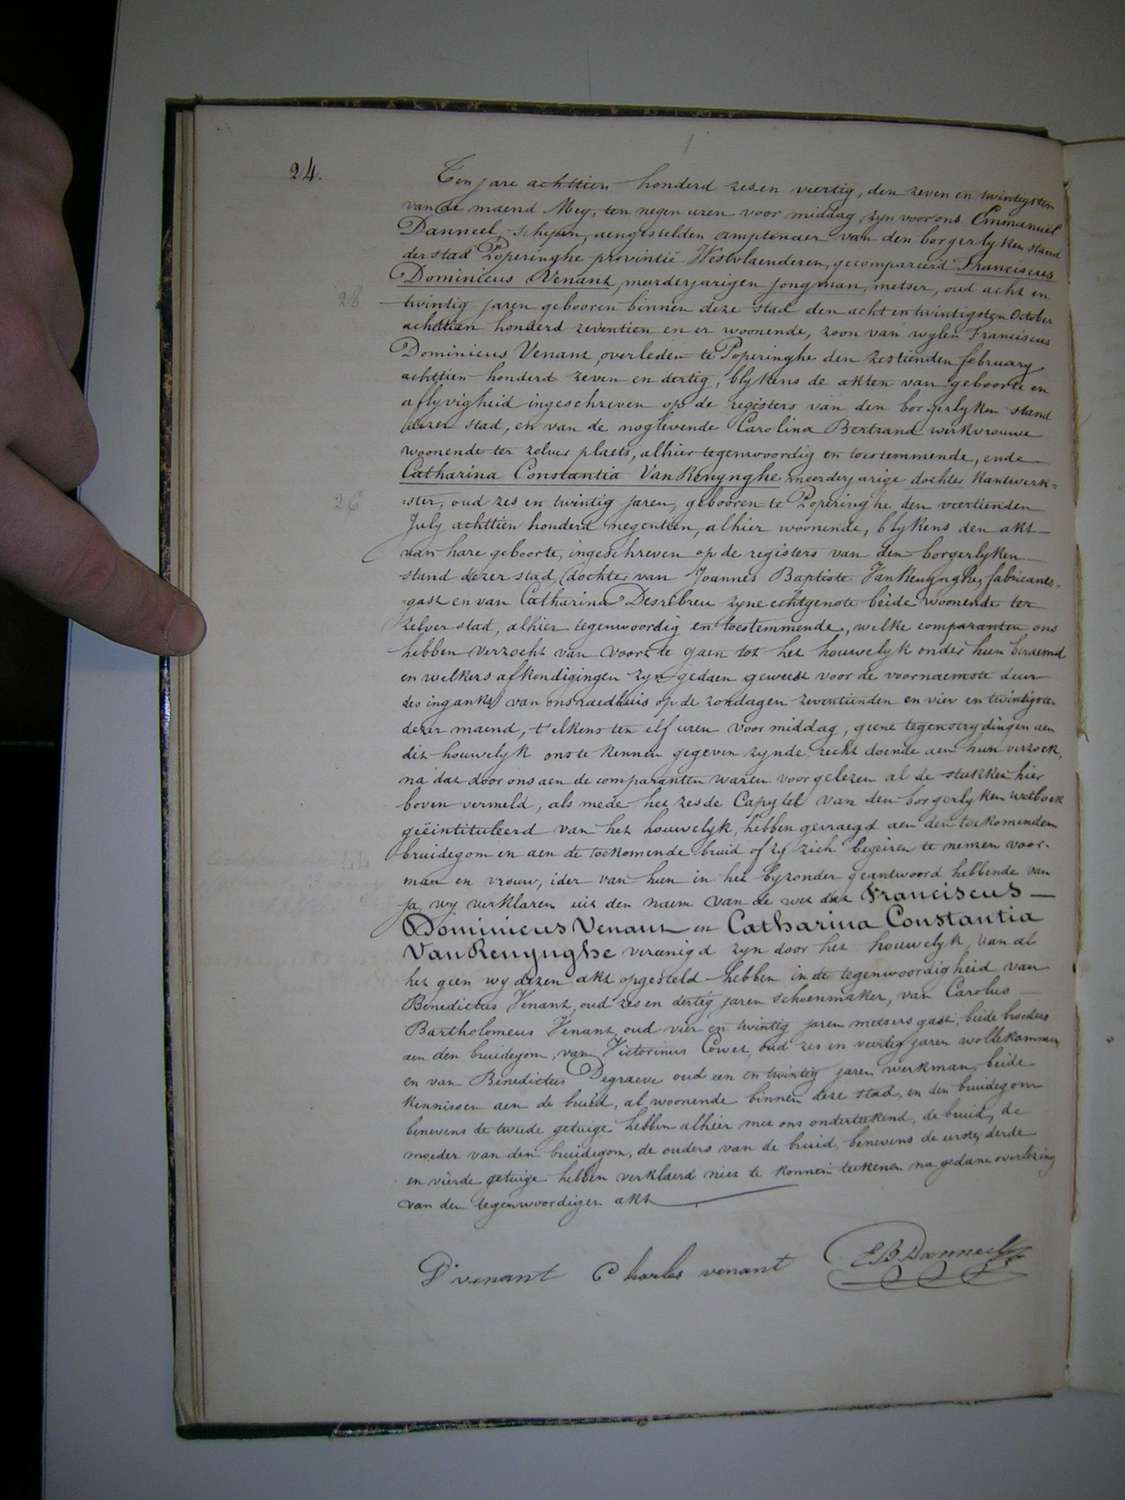 24.
Ten jare achttien honderd zesen veertig, den zeven en twintigsten
van de maend Mey, ten negen uren voor middag, zyn voor ons Emmanuel
Danneel, schepen, aengestelden amptenaer van den borgerlyken stand
der stad Poperinghe provintie Westvlaenderen, gecompareerd Franciscus
Dominicus Venant, meerderjarigen jongman, metser, oud acht en
28
twintig jaren gebooren binnen deze stad den acht en twintigsten October
achttien honderd zeventien en er woonende, zoon van wylen Franciscus
Dominicus Venant, overleden te Poperinghe den zestienden february
achttien honderd zeven en dertig, blykens de akten van geboorte en
aflyvigheid ingeschreven op de registers van den borgerlyken stand
dezer stad, en van de noglevende Carolina Bertrand werkvrouwe
woonende ter zelver plaets, alhier tegenwoordig en toestemmende, ende
Catharina Constantia VanRenynghe meerderjarige dochter kantwerk=
26
ster, oud zes en twintig jaren, gebooren te Poperinghe den veertienden
July achttien honderd negentien, alhier woonende, blykens den akt
van hare geboorte, ingeschreven op de registers van den borgerlyken
stand dezer stad, dochter van Joannes Baptiste VanRenynghe, fabricants-
gast en van Catharina Desrèbreu zyne echtgenote beide woonende ter
zelver stad, alhier tegenwoordig en toestemmende, welke comparanten ons
hebben verzocht van voort te gaen tot het houwelyk onder hun beraemd
en welkers afkondigingen zyn gedaen geweest voor de voornaemste deur
des ingankx van ons raedhuis op de zondagen zeventienden en vier en twintigsten
dezer maend, t'elkens ten elf uren voor middag, geene tegenstrydingen aen
dit houwelyk ons te kennen gegeven zynde, recht doende aen hun verzoek,
na dat door ons aen de comparanten waren voorgelezen al de stukken hier
boven vermeld, als mede het zesde Capytel van den borgerlyken wetboek
geëintituleerd van het houwelyk, hebben gevraegd aen den toekomenden
bruidegom en aen de toekomende bruid of zy zich begeiren te nemen voor
man en vrouw, ider van hun in het byzonder geantwoord hebbende van
ja, wy verklaren uit den naem van de wet dat Franciscus
Dominicus Venant en Catharina Constantia
VanRenynghe vereenigd zyn door het houwelyk, van al
het geen wy dezen akt opgesteld hebben in de tegenwoordigheid van
Benedictus Venant, oud zes en dertig jaren schoenmaker, van Carolus
Bartholomeus Venant, oud vier en twintig jaren metsers gast, beide broeders
aen den bruidegom, van Victorinus Cowet, oud zes en veertig jaren wollekammer
en van Benedictus Degraeve oud een en twintig jaren werkman, beide
kennissen aen de bruid, al woonende binnen deze stad, en den bruidegom
benevens de tweede getuige hebben alhier met ons onderteekend, de bruid, de
moeder van den bruidegom, de ouders van de bruid, benevens de eerste, derde
en vierde getuige hebben verklaerd niet te konnen teekenen na gedane overlezing
van den tegenwoordigen akt
D'venant Charles venant EBDanneel